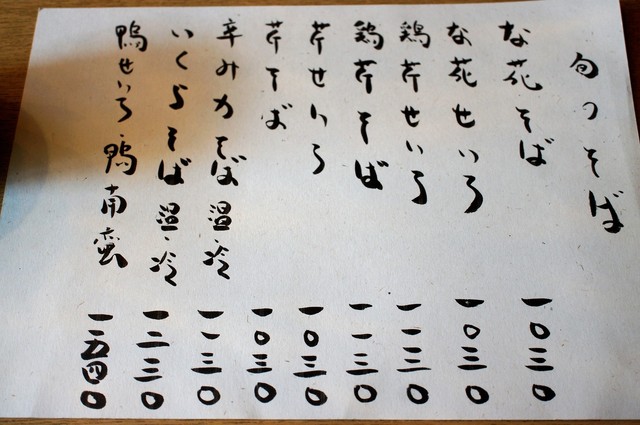 旬のそば
な花そば 一〇三〇
な花せいろ 一〇三〇
鶏芹せいろ 一一三〇
鶏芹そば 一一三〇
芹せいろ 一〇三〇
芹そば 一〇三〇
辛み力そば 温・冷 一一三〇
いくらそば 温・冷 一二三〇
鴨せいろ・鴨南蛮 一五四〇